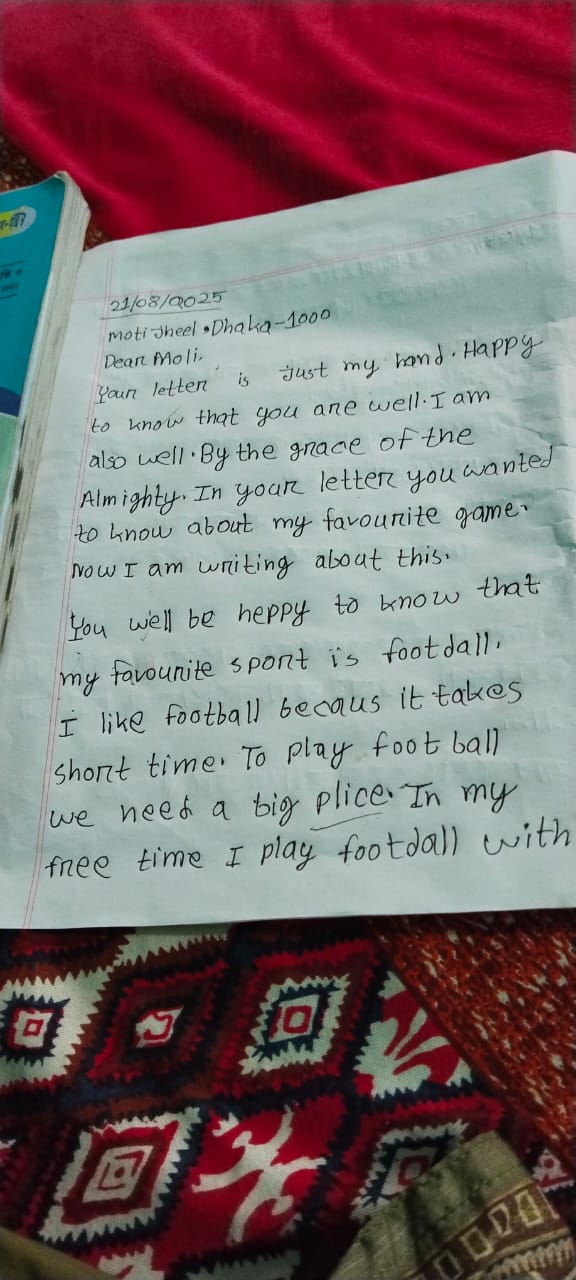 21/08/2025
Moti Jheel . Dhaka-1000
Dear Moli,
Your letter is just my hand. Happy
to know that you are well. I am
also well. By the grace of the
Almighty. In your letter you wanted
to know about my favourite game.
Now I am writing about this.
You well be heppy to know that
my favourite sport is footdall.
I like football becaus it takes
short time. To play foot ball
we need a big plice. In my
free time I play footdall with